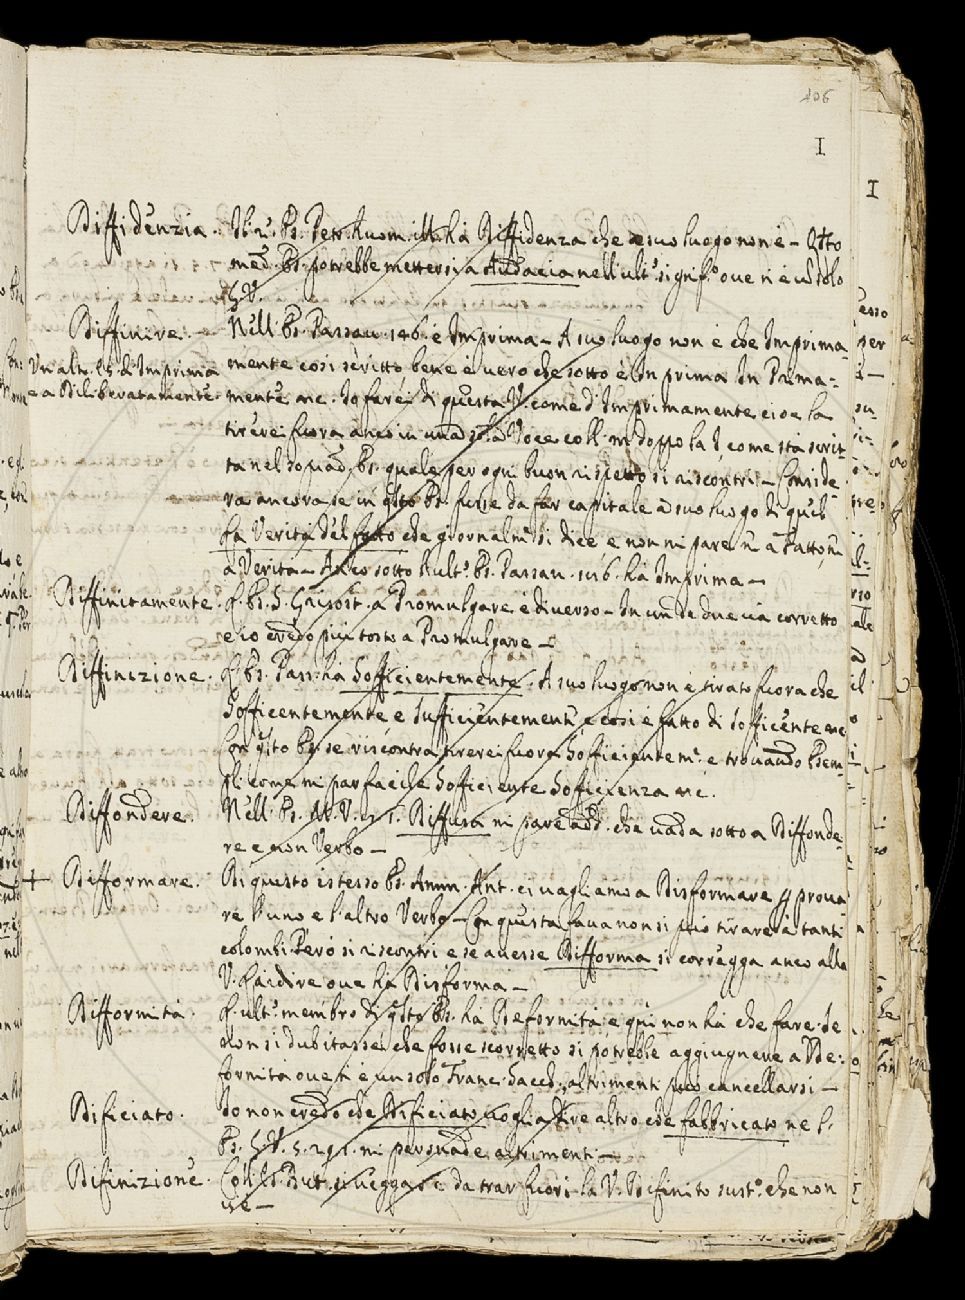 106
I
Diffidenzia. Il 2.° Es. Petr. huom. ill. ha Diffidenza che a suo luogo non è – Q.sto
med.° Es. potrebbe mettersi a Audacia nell'ult.° signif.° ove n'è un solo
G.V.
Diffinire. – Nell'Es. Passav. 146. è Imprima – A suo luogo non è che Imprima-
Un altro Es. d'Imprima mente così scritto bene è vero che sotto è In prima In Prima-
e a Diliberatamente mente &c. Io farei di questa V. come d'Imprimamente cioè la
tirerei fuora anco in una sola Voce coll' m doppo la I come sta scrit
ta nel soprad.° Es. quale per ogni buon rispetto si riscontri – Conside-
ra ancora se in q.sto Es. fusse da far capitale a suo luogo di quel
la Verità del fatto che giornalm.te si dice e non mi pare nè a Fatto, nè
a Verità – Anco sotto l'ult.° Es. Passav. 116. ha Imprima –
Diffinitamente. L'Es. S. Grisost. a Promulgare è diverso – In un de due va corretto
e io credo più tosto a Promulgare –
Diffinizione. L'Es. Pass. ha Sofficientemente. A suo luogo non è tirato fuora che
Sofficentemente e Sufficientemente, e così è fatto di Sofficente &c
Con q.sto Es. se riscontra tirerei fuora Sofficientem.te e trovando Esem-
pli come mi par facile Sofficiente Sofficienza &c.
Diffondere. Nell'Es. M.V. Diffusa mi pare add. che vada sotto a Diffonde-
re e non Verbo –
+ Difformare. Di questo istesso Es. Amm. Ant. ci vagliamo a Disformare p prova-
re l'uno e l'altro Verbo – Con questa fava non si può tirare a tanti
colombi Però si riscontri e se avesse Difforma si corregga anco alla
V. Laidire ove ha Disforma –
Difformità. L'ult.° membro di q.sto Es. ha Deformità e quì non ha che fare. Se
non si dubitasse che fosse scorretto si potrebbe aggiugnere a De-
formità ove n'è un solo Franc. Sacch., altrimenti può cancellarsi –
Dificiato. Io non credo che Dificiato voglia dire altro che fabbricato ne l'
Es. G.V. 5. 29. 1. mi persuade altrimenti –
Difinizione. Coll'Es. But. si vegga se è da trar fuori la V. Definito sust.° che non
v'è –